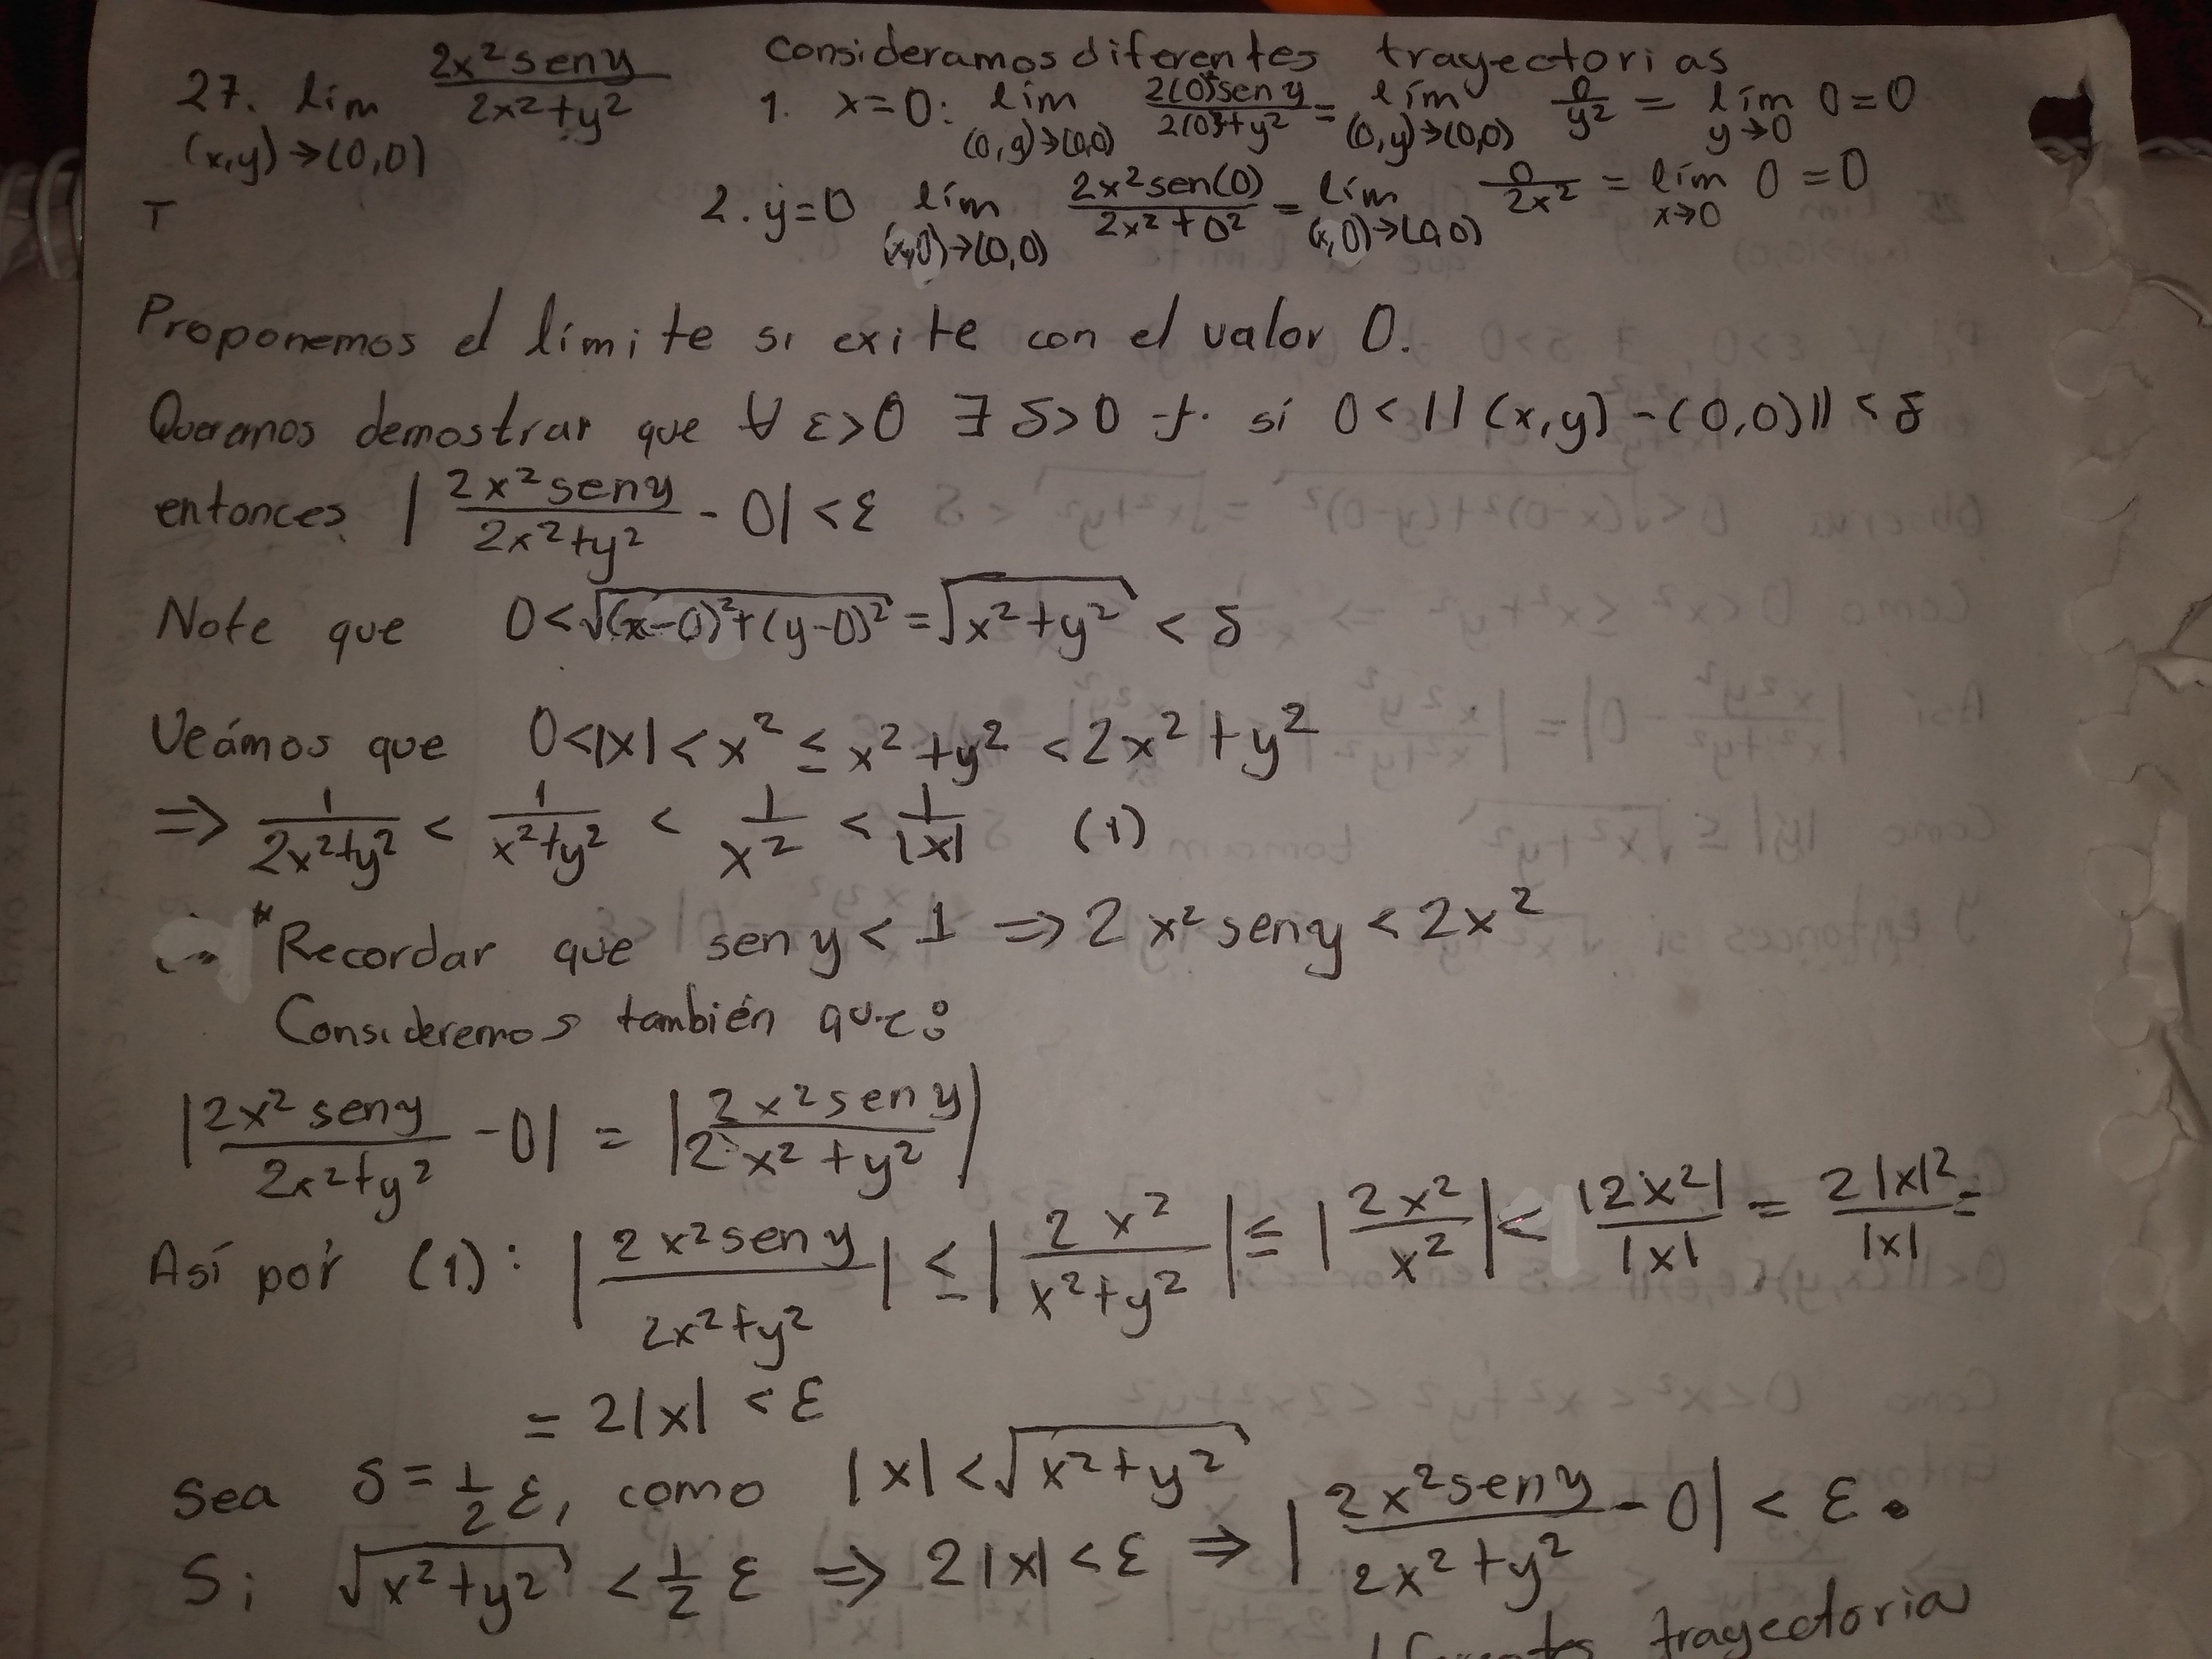 27. lím 2x²seny / 2x²+y² Consideramos diferentes trayectorias
(x,y)→(0,0) 1. x=0: lím 2(0)²sen y / 2(0)²+y² = lím 0/y² = lím 0=0
(0,y)→(0,0) (0,y)→(0,0) y→0
2. y=0 lím 2x²sen(0) / 2x²+0² = lím 0/2x² = lím 0 =0
(x,0)→(0,0) (x,0)→(0,0) x→0
Proponemos el límite si exite con el valor 0.
Queremos demostrar que ∀ ε>0 ∃ δ>0 t. si 0<||(x,y)-(0,0)|| < δ
entonces | 2x²seny / 2x²+y² - 0| < ε
Note que 0<√(x-0)²+(y-0)² = √x²+y² < δ
Veámos que 0<|x|<x² ≤ x²+y² < 2x²+y²
⇒ 1/2x²+y² < 1/x²+y² < 1/x² < 1/|x| (1)
*Recordar que sen y < 1 ⇒ 2x² seny < 2x²
Consideremos también que:
|2x² seny / 2x²+y² - 0| = |2x²seny / 2x²+y²|
Así por (1): |2x²seny / 2x²+y²| ≤ |2x² / x²+y²| ≤ |2x² / x²| < |2x²| / |x| = 2|x|² / |x| =
= 2|x| < ε
Sea δ = 1/2 ε, como |x| < √x²+y²
Si √x²+y² < 1/2 ε ⇒ 2|x| < ε ⇒ | 2x²seny / 2x²+y² - 0| < ε.
trayectoria